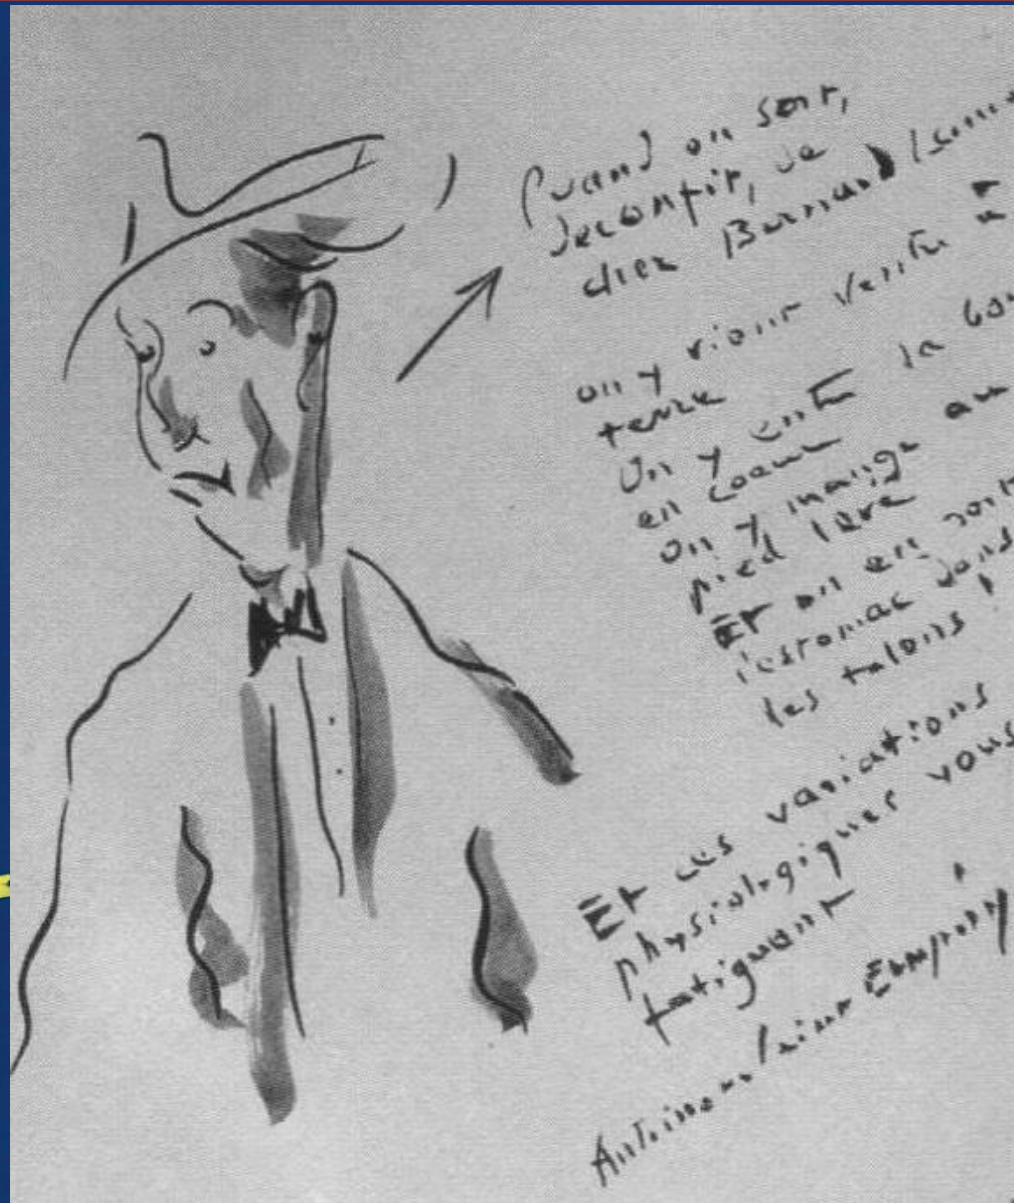 Quand on sort,
deconfit, de
chez Bernard
on y vient ventre à
terre
On y entre la
en coeur
on y mange au
pied levé
Et on en sort
l'estomac dans
les talons !
Et ces variations
physiologiques vous
fatiguent
Antoine de Saint Exupéry